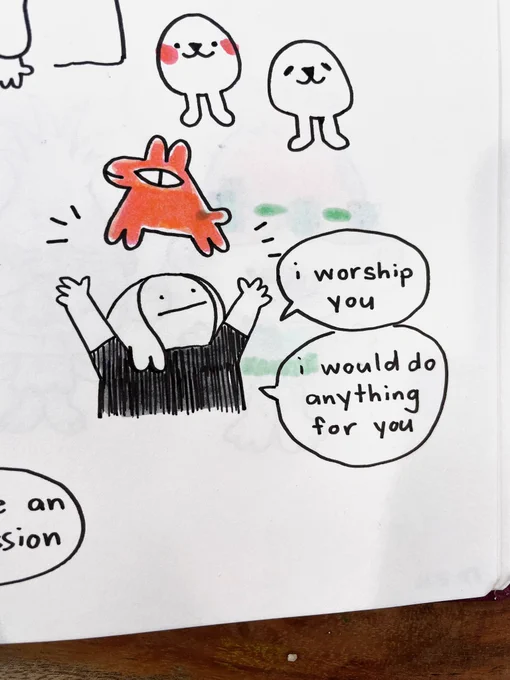 i worship
you
i would do
anything
for you
an